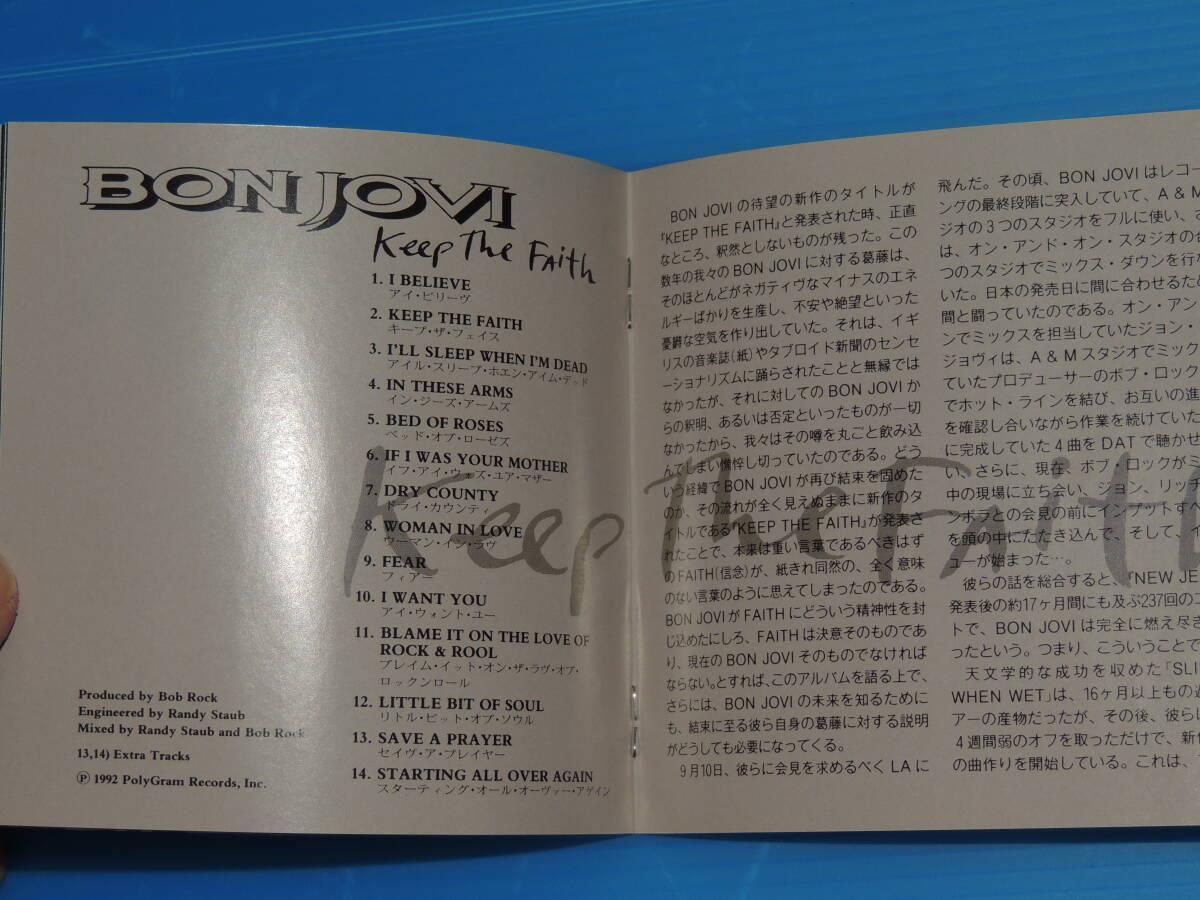 BON JOVI
Keep The Faith
1. I BELIEVE
アイ・ビリーヴ
2. KEEP THE FAITH
キープ・ザ・フェイス
3. I'LL SLEEP WHEN I'M DEAD
アイル・スリープ・ホエン・アイム・デッド
4. IN THESE ARMS
イン・ジーズ・アームズ
5. BED OF ROSES
ベッド・オブ・ローゼズ
6. IF I WAS YOUR MOTHER
イフ・アイ・ウォズ・ユア・マザー
7. DRY COUNTY
ドライ・カウンティ
8. WOMAN IN LOVE
ウーマン・イン・ラヴ
9. FEAR
フィアー
10. I WANT YOU
アイ・ウォント・ユー
11. BLAME IT ON THE LOVE OF
ROCK & ROOL
ブレイム・イット・オン・ザ・ラヴ・オブ・
ロックンロール
12. LITTLE BIT OF SOUL
リトル・ビット・オブ・ソウル
13. SAVE A PRAYER
セイヴ・ア・プレイヤー
14. STARTING ALL OVER AGAIN
スターティング・オール・オーヴァー・アゲイン
Produced by Bob Rock
Engineered by Randy Staub
Mixed by Randy Staub and Bob Rock
13,14) Extra Tracks
Ⓟ 1992 PolyGram Records, Inc.
Keep The Faith
BON JOVIの待望の新作のタイトルが
『KEEP THE FAITH』と発表された時、正直
なところ、釈然としないものが残った。この
数年の我々のBON JOVIに対する葛藤は、
そのほとんどがネガティヴなマイナスのエネ
ルギーばかりを生産し、不安や絶望といった
憂鬱な空気を作り出していた。それは、イギ
リスの音楽誌(紙)やタブロイド新聞のセンセ
ーショナリズムに踊らされたことと無縁では
なかったが、それに対してのBON JOVIか
らの釈明、あるいは否定といったものが一切
なかったから、我々はその噂を丸ごと飲み込
んでしまい憔悴し切っていたのである。どう
いう経緯でBON JOVIが再び結束を固めた
のか、その流れが全く見えぬままに新作のタ
イトルである『KEEP THE FAITH』が発表さ
れたことで、本来は重い言葉であるべきはず
のFAITH(信念)が、紙きれ同然の、全く意味
のない言葉のように思えてしまったのである。
BON JOVIがFAITHにどういう精神性を封
じ込めたにしろ、FAITHは決意そのものであ
り、現在のBON JOVIそのものでなければ
ならない。とすれば、このアルバムを語る上で、
さらには、BON JOVIの未来を知るために
も、結束に至る彼ら自身の葛藤に対する説明
がどうしても必要になってくる。
9月10日、彼らに会見を求めるべくLAに
飛んだ。その頃、BON JOVIはレコー
ングの最終段階に突入していて、A & M
ジオの3つのスタジオをフルに使い、
は、オン・アンド・オン・スタジオの
つのスタジオでミックス・ダウンを行
いた。日本の発売日に間に合わせるた
間と闘っていたのである。オン・アン
ンでミックスを担当していたジョン・
ジョヴィは、A & Mスタジオでミック
ていたプロデューサーのボブ・ロック
でホット・ラインを結び、お互いの進
を確認し合いながら作業を続けていた
に完成していた4曲をDATで聴かせ
い、さらに、現在、ボブ・ロックがミ
中の現場に立ち会い、ジョン、リッチ
ンボラとの会見の前にインプットすべ
を頭の中にたたき込んで、そして、イ
ューが始まった…。
彼らの話を総合すると、『NEW JE
発表後の約17ヶ月間にも及ぶ237回のコ
トで、BON JOVIは完全に燃え尽き
ったという。つまり、こういうことで
天文学的な成功を収めた「SLI
WHEN WET」は、16ヶ月以上もの
アーの産物だったが、その後、彼らは
4週間弱のオフを取っただけで、新作
の曲作りを開始している。これは、